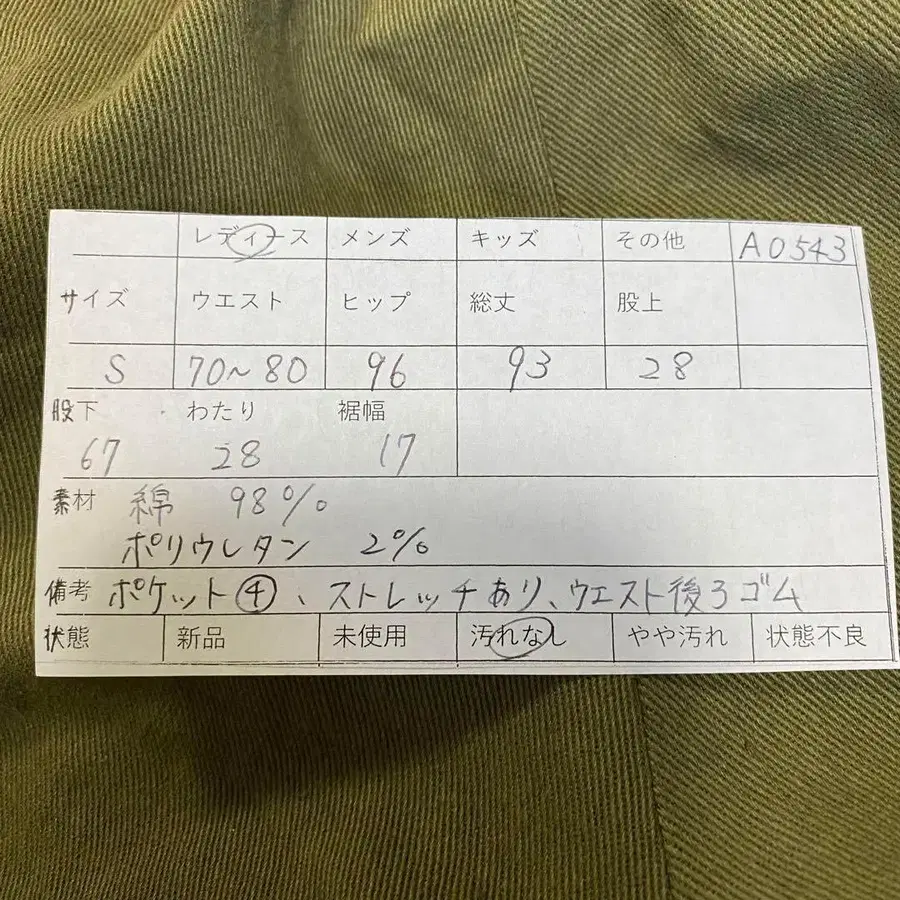 レディース メンズ キッズ その他 A0543
サイズ ウエスト ヒップ 総丈 股上
S 70~80 96 93 28
股下 わたり 裾幅
67 28 17
素材 綿 98%
ポリウレタン 2%
備考 ポケット④、ストレッチあり、ウエスト後ろゴム
状態 新品 未使用 汚れなし やや汚れ 状態不良